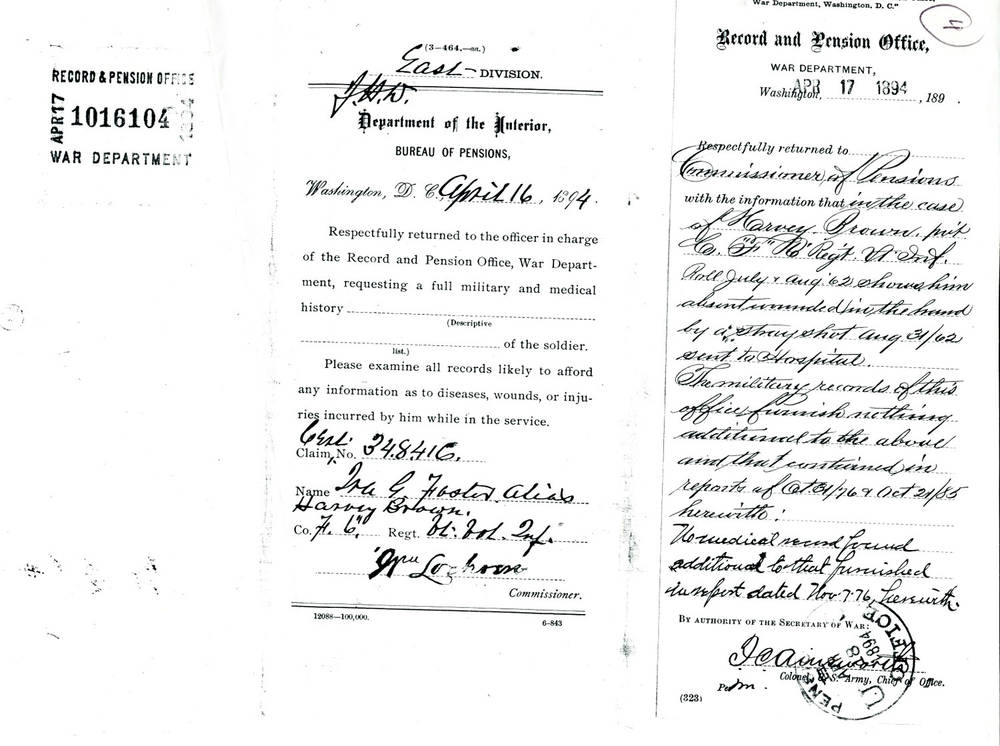 RECORD & PENSION OFFICE
APR 17 1016104 1894
WAR DEPARTMENT
(3—464.)
East DIVISION.
Department of the Interior,
BUREAU OF PENSIONS,
Washington, D. C., April 16, 1894.
Respectfully returned to the officer in charge
of the Record and Pension Office, War Depart-
ment, requesting a full military and medical
history
(Descriptive
of the soldier.
list.)
Please examine all records likely to afford
any information as to diseases, wounds, or inju-
ries incurred by him while in the service.
Cert.
Claim No. 348416.
Name Ira G. Foster alias
Harvey Brown.
Co. F. 6" Regt. Vt. Vol. Inf.
Wm Lochren
Commissioner.
12088—100,000. 6-843
War Department, Washington, D. C."
Record and Pension Office,
WAR DEPARTMENT,
Washington, APR 17 1894, 189 .
Respectfully returned to
Commissioner of Pensions
with the information that in the case
of Harvey Brown, pvt
Co. "F" 6" Regt. Vt Inf.
Roll July & Aug '62 shows him
absent wounded in the hand
by a stray shot Aug 31/62
sent to Hospital.
The military records of this
office furnish nothing
additional to the above
and that contained in
reports of Oct 31/76 & Oct 21/85
herewith:
No medical record found
additional to that furnished
in report dated Nov. 7. 76, herewith.
BY AUTHORITY OF THE SECRETARY OF WAR:
F C Ainsworth
Colonel, U. S. Army, Chief of Office.
Per m.
(323)